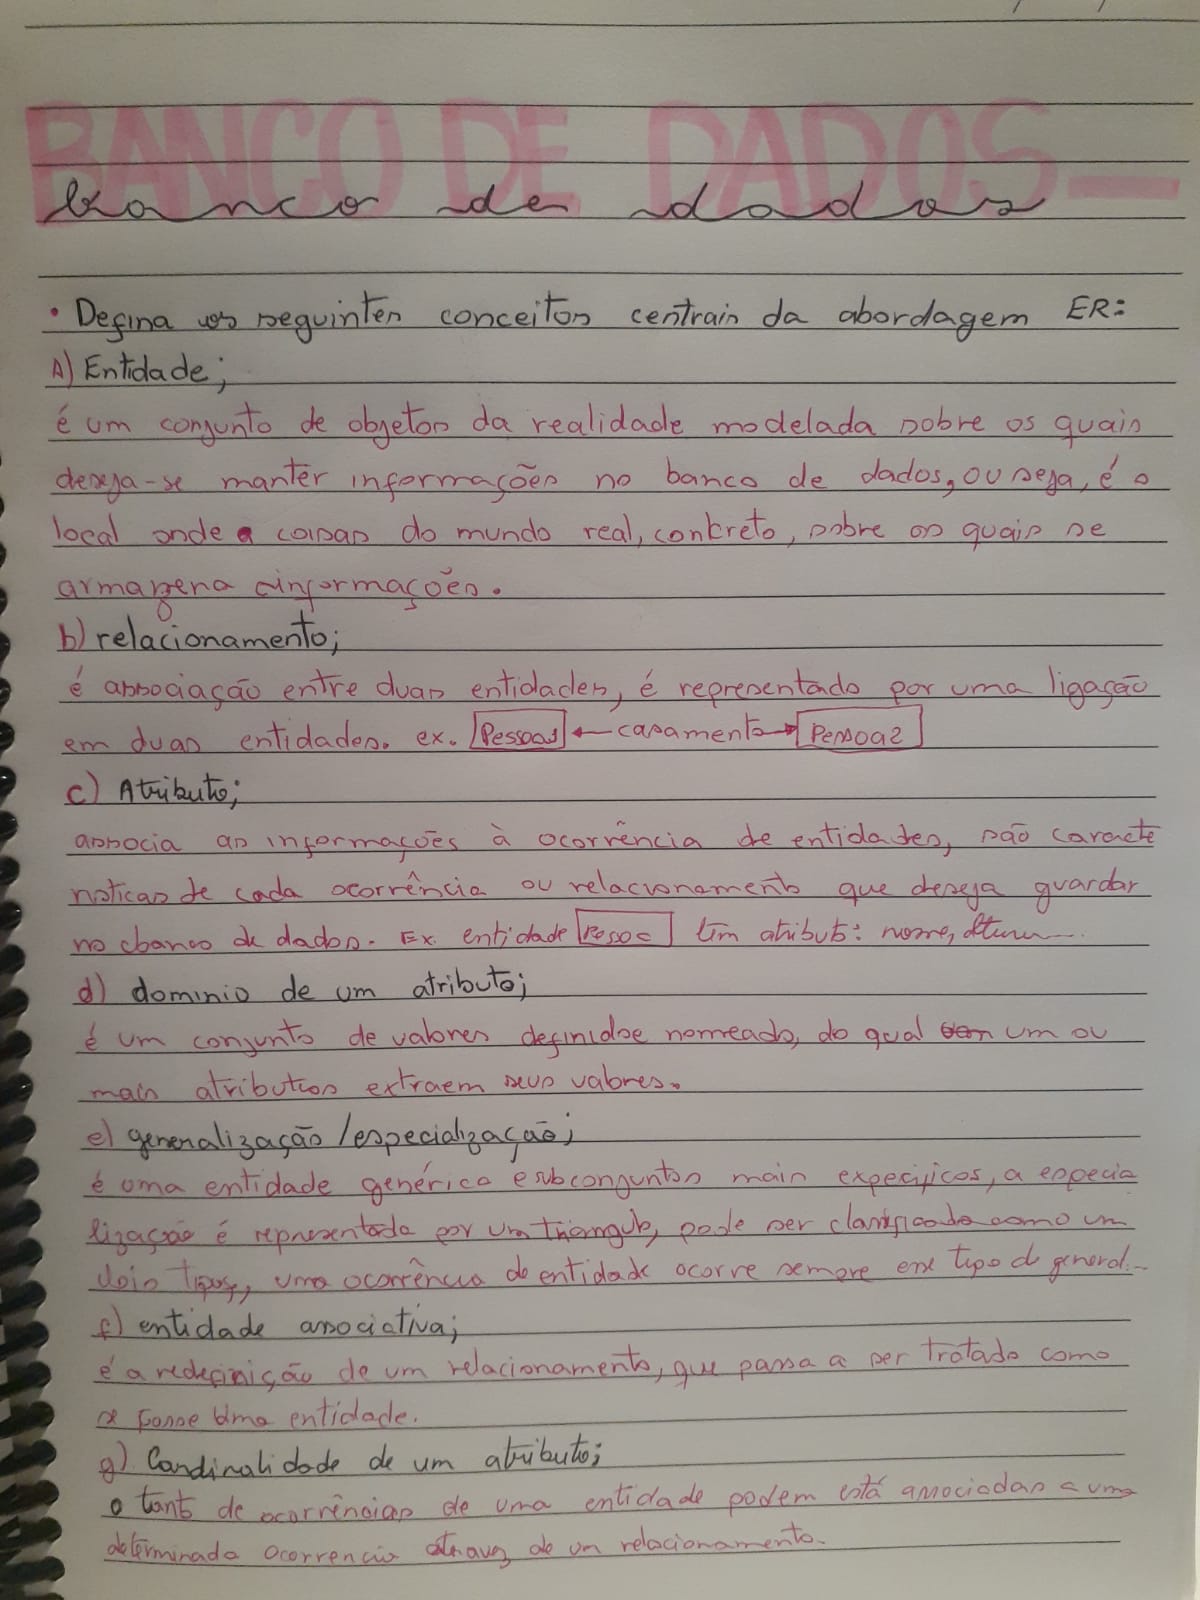 BANCO DE DADOS
banco de dados
• Defina os seguintes conceitos centrais da abordagem ER:
A) Entidade;
é um conjunto de objetos da realidade modelada sobre os quais
deseja-se manter informações no banco de dados, ou seja, é o
local onde a coisas do mundo real, concreto, sobre os quais se
armazena informações.
b) relacionamento;
é associação entre duas entidades, é representado por uma ligação
em duas entidades. ex. Pessoa1 ← casamento → Pessoa2
c) Atributo;
associa as informações à ocorrência de entidades, são caracte
risticas de cada ocorrência ou relacionamento que deseja guardar
no banco de dados. Ex. entidade Pessoa tem atribut: nome,
d) dominio de um atributo;
é um conjunto de valores definidos nomeado, do qual um ou
mais atributos extraem seus valores.
e) generalização/especialização;
é uma entidade genérica e subconjuntos mais expecificos, a especia
lização é representada por um triângulo, pode ser classificada como um
dois tipos, uma ocorrência de entidade ocorre sempre em tipo de general..
f) entidade associativa;
é a redefinição de um relacionamento, que passa a ser tratado como
se fosse uma entidade.
g) Cardinalidade de um atributo;
o tant de ocorrências de uma entidade podem está associadas a uma
determinada ocorrencia através de um relacionamento.